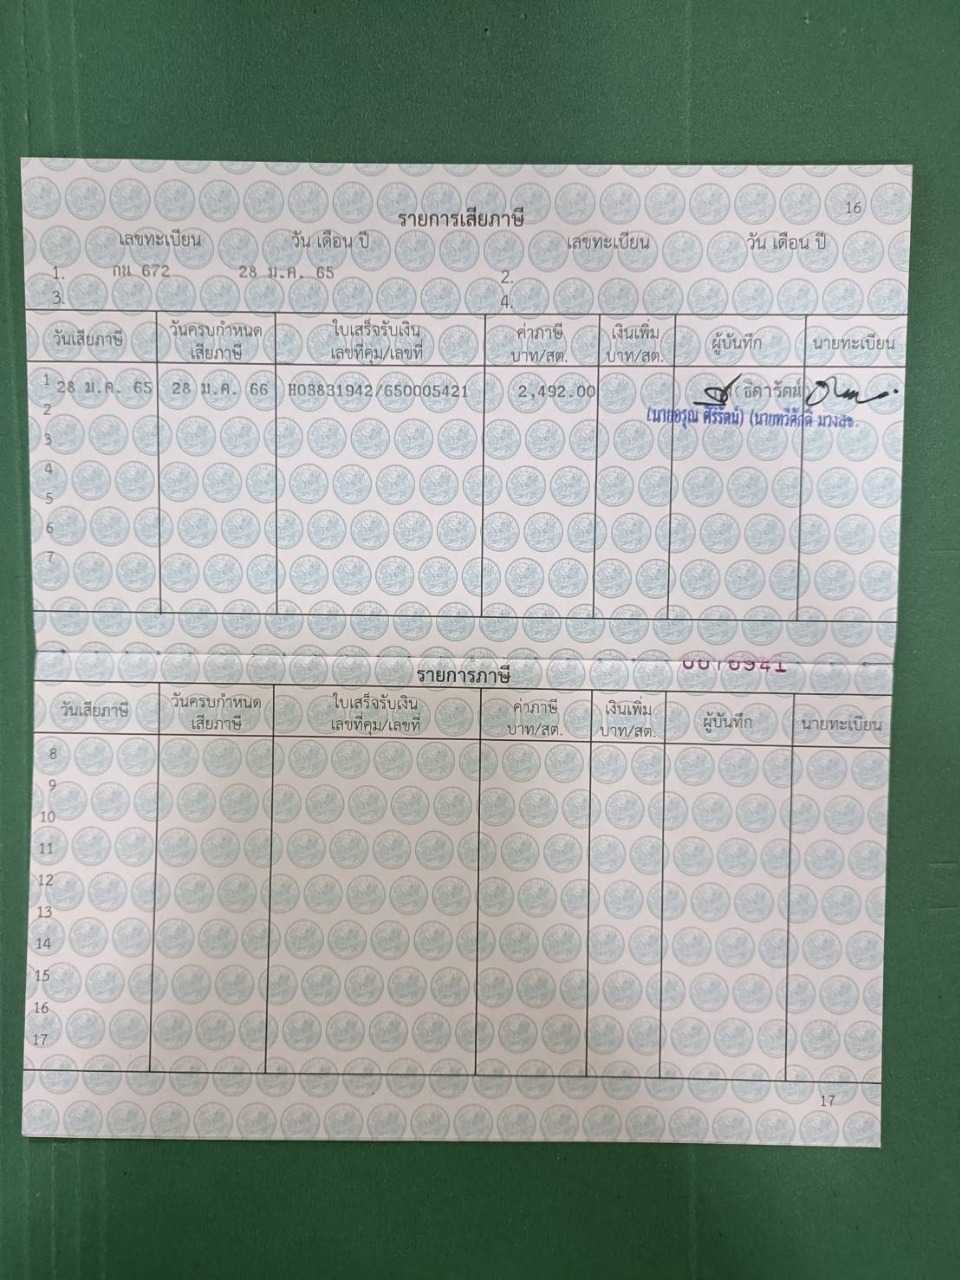 16
รายการเสียภาษี
เลขทะเบียน วัน เดือน ปี เลขทะเบียน วัน เดือน ปี
1. กน 672 28 ม.ค. 65 2.
3. 4.
วันเสียภาษี วันครบกำหนด เสียภาษี ใบเสร็จรับเงิน เลขที่คุม/เลขที่ ค่าภาษี บาท/สต. เงินเพิ่ม บาท/สต. ผู้บันทึก นายทะเบียน
1 28 ม.ค. 65 28 ม.ค. 66 H03831942/650005421 2,492.00 ธิดารัตน์
2 (นายอรุณ ศิริรัตน์) (นายทวีศักดิ์
3
4
5
6
7
รายการภาษี
วันเสียภาษี วันครบกำหนด เสียภาษี ใบเสร็จรับเงิน เลขที่คุม/เลขที่ ค่าภาษี บาท/สต. เงินเพิ่ม บาท/สต. ผู้บันทึก นายทะเบียน
8
9
10
11
12
13
14
15
16
17
17